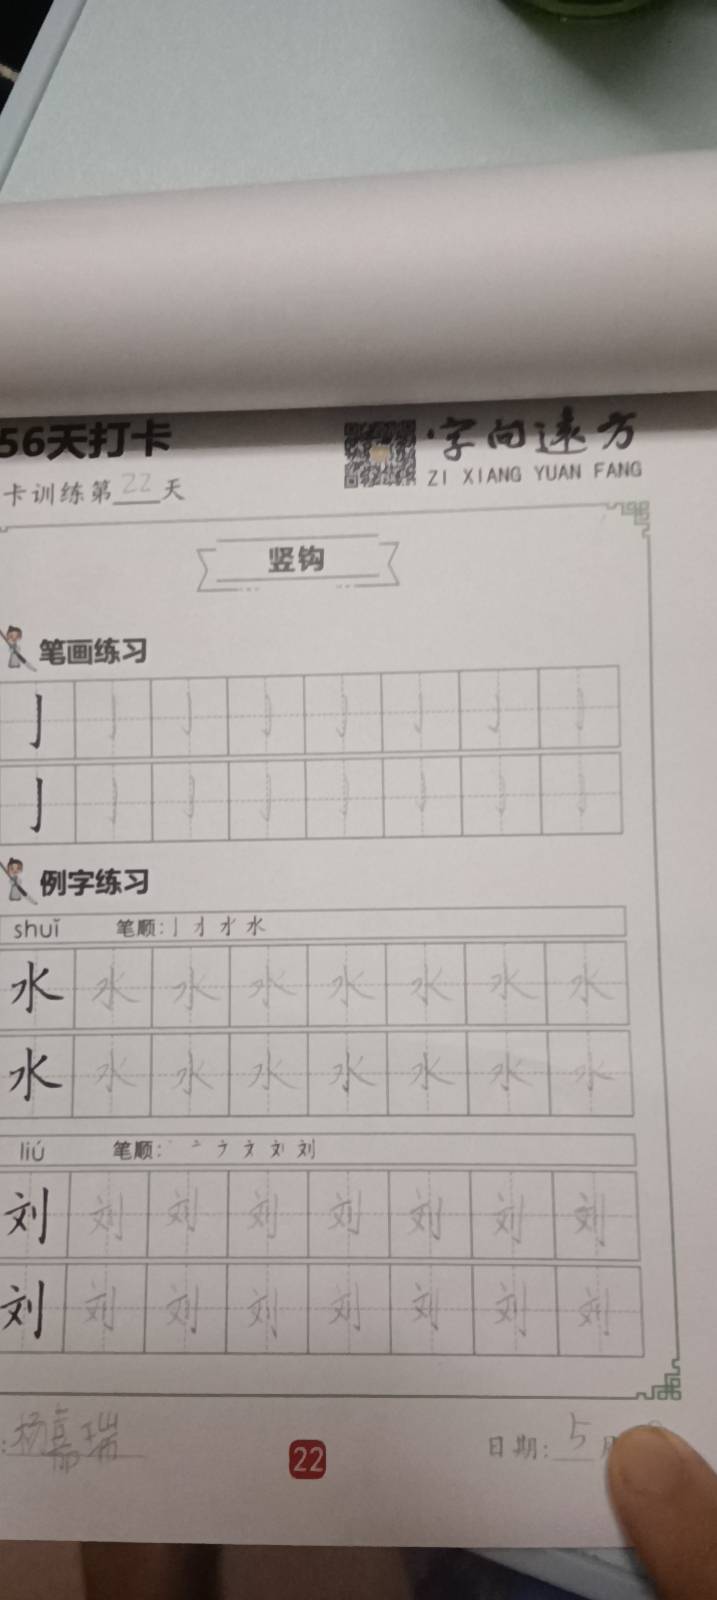 56天打卡
字向远方
ZI XIANG YUAN FANG
卡训练第22天
竖钩
笔画练习
亅 亅 亅 亅 亅 亅 亅 亅
亅 亅 亅 亅 亅 亅 亅 亅
例字练习
shuǐ 笔顺:
水 水 水 水 水 水 水 水
水 水 水 水 水 水 水 水
liú 笔顺: 刘
刘 刘 刘 刘 刘 刘 刘 刘
刘 刘 刘 刘 刘 刘 刘 刘
:杨嘉瑞
22
日期:5月